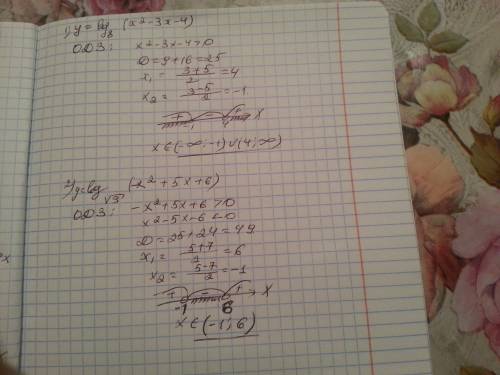 1) y = log₈ (x²-3x-4)
ОДЗ: x²-3x-4>0
D=9+16=25
x₁ = (3+5)/2 = 4
x₂ = (3-5)/2 = -1
+ - + x
-1
x∈(-∞;-1)∪(4;∞)
2) y=log√3 (-x²+5x+6)
ОДЗ: -x²+5x+6>0
x²-5x-6<0
D=25+24=49
x₁ = (5+7)/2 = 6
x₂ = (5-7)/2 = -1
+ - + x
-1 6
x∈(-1;6)